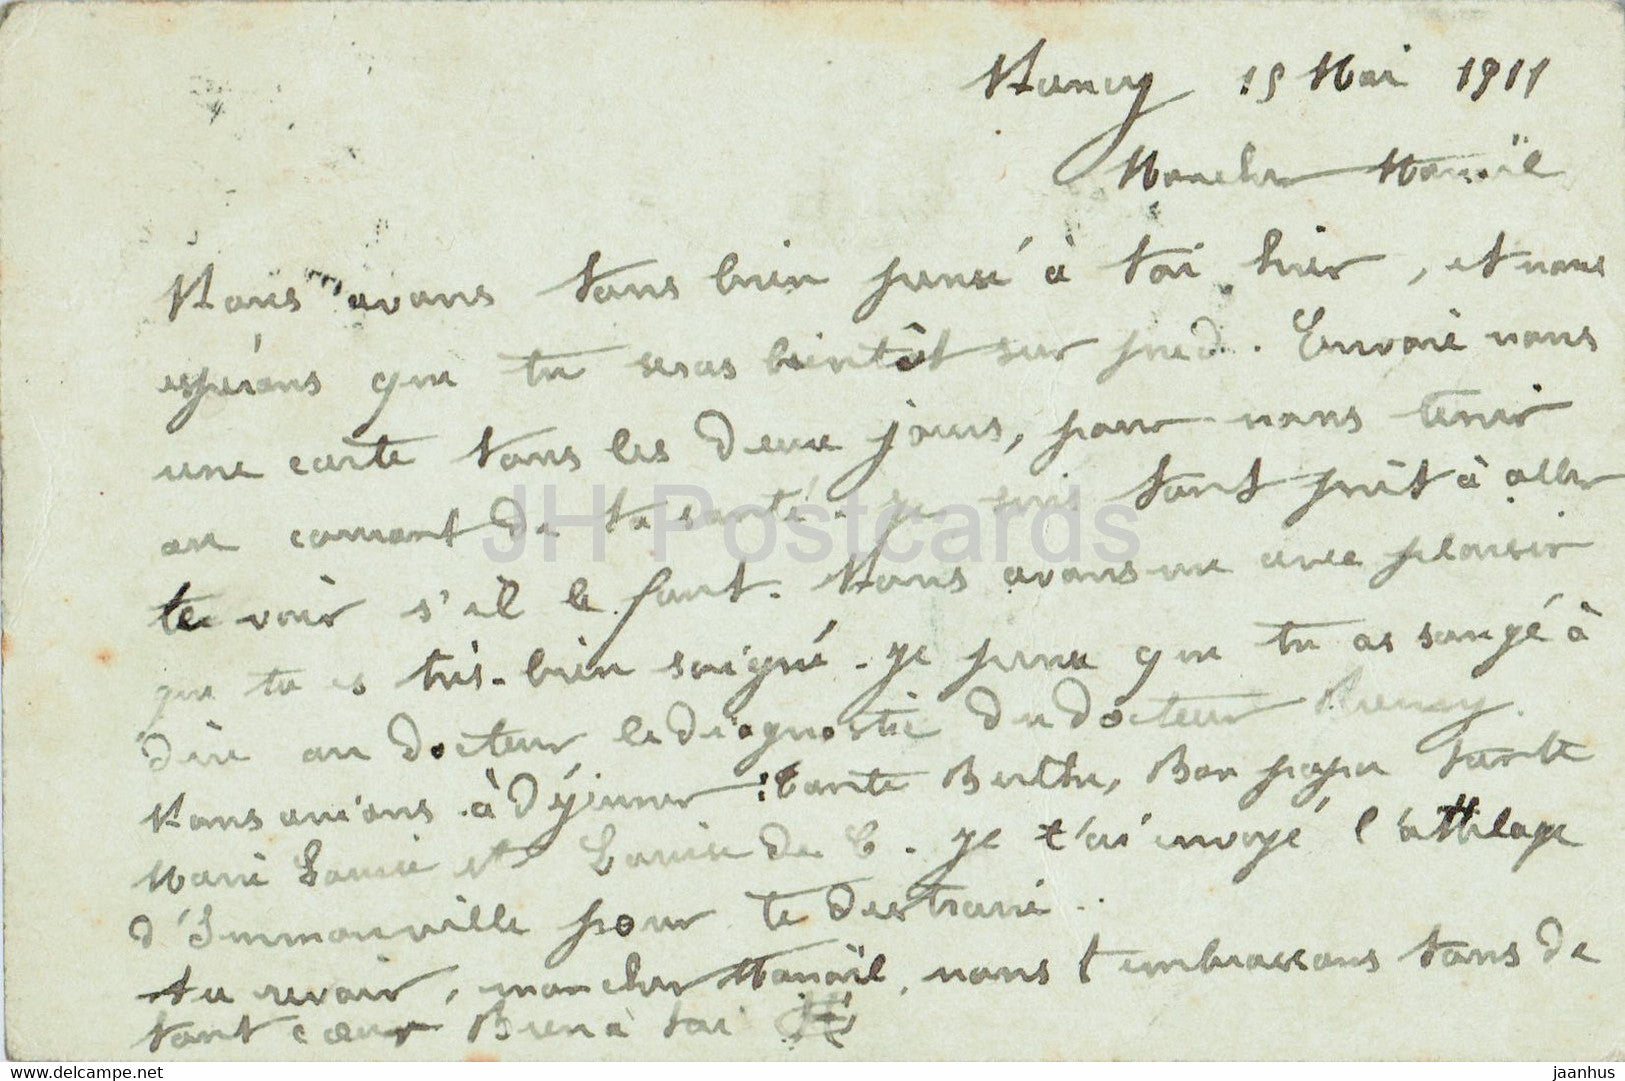 Nancy 15 Mai 1911
Mon cher Manoël
Nous avons tous bien pensé à toi hier, et nous
espérons que tu seras bientôt sur pied. Envoie nous
une carte tous les deux jours, pour nous tenir
au courant de ta santé. je suis tout prêt à aller
te voir s'il le faut. Nous avons vu avec plaisir
que tu es très-bien soigné. je pense que tu as songé à
dire au docteur le diagnostic du docteur
Nous avions à déjeuner : tante Berthe, Bon papa tante
Marie Louise et Louise de C. je t'ai envoyé l'attelage
d'Immonville pour te distraire..
Au revoir, mon cher Manoël, nous t'embrassons tous de
tout cœur Bien à toi
JH Postcards
delcampe.net
jaanhus